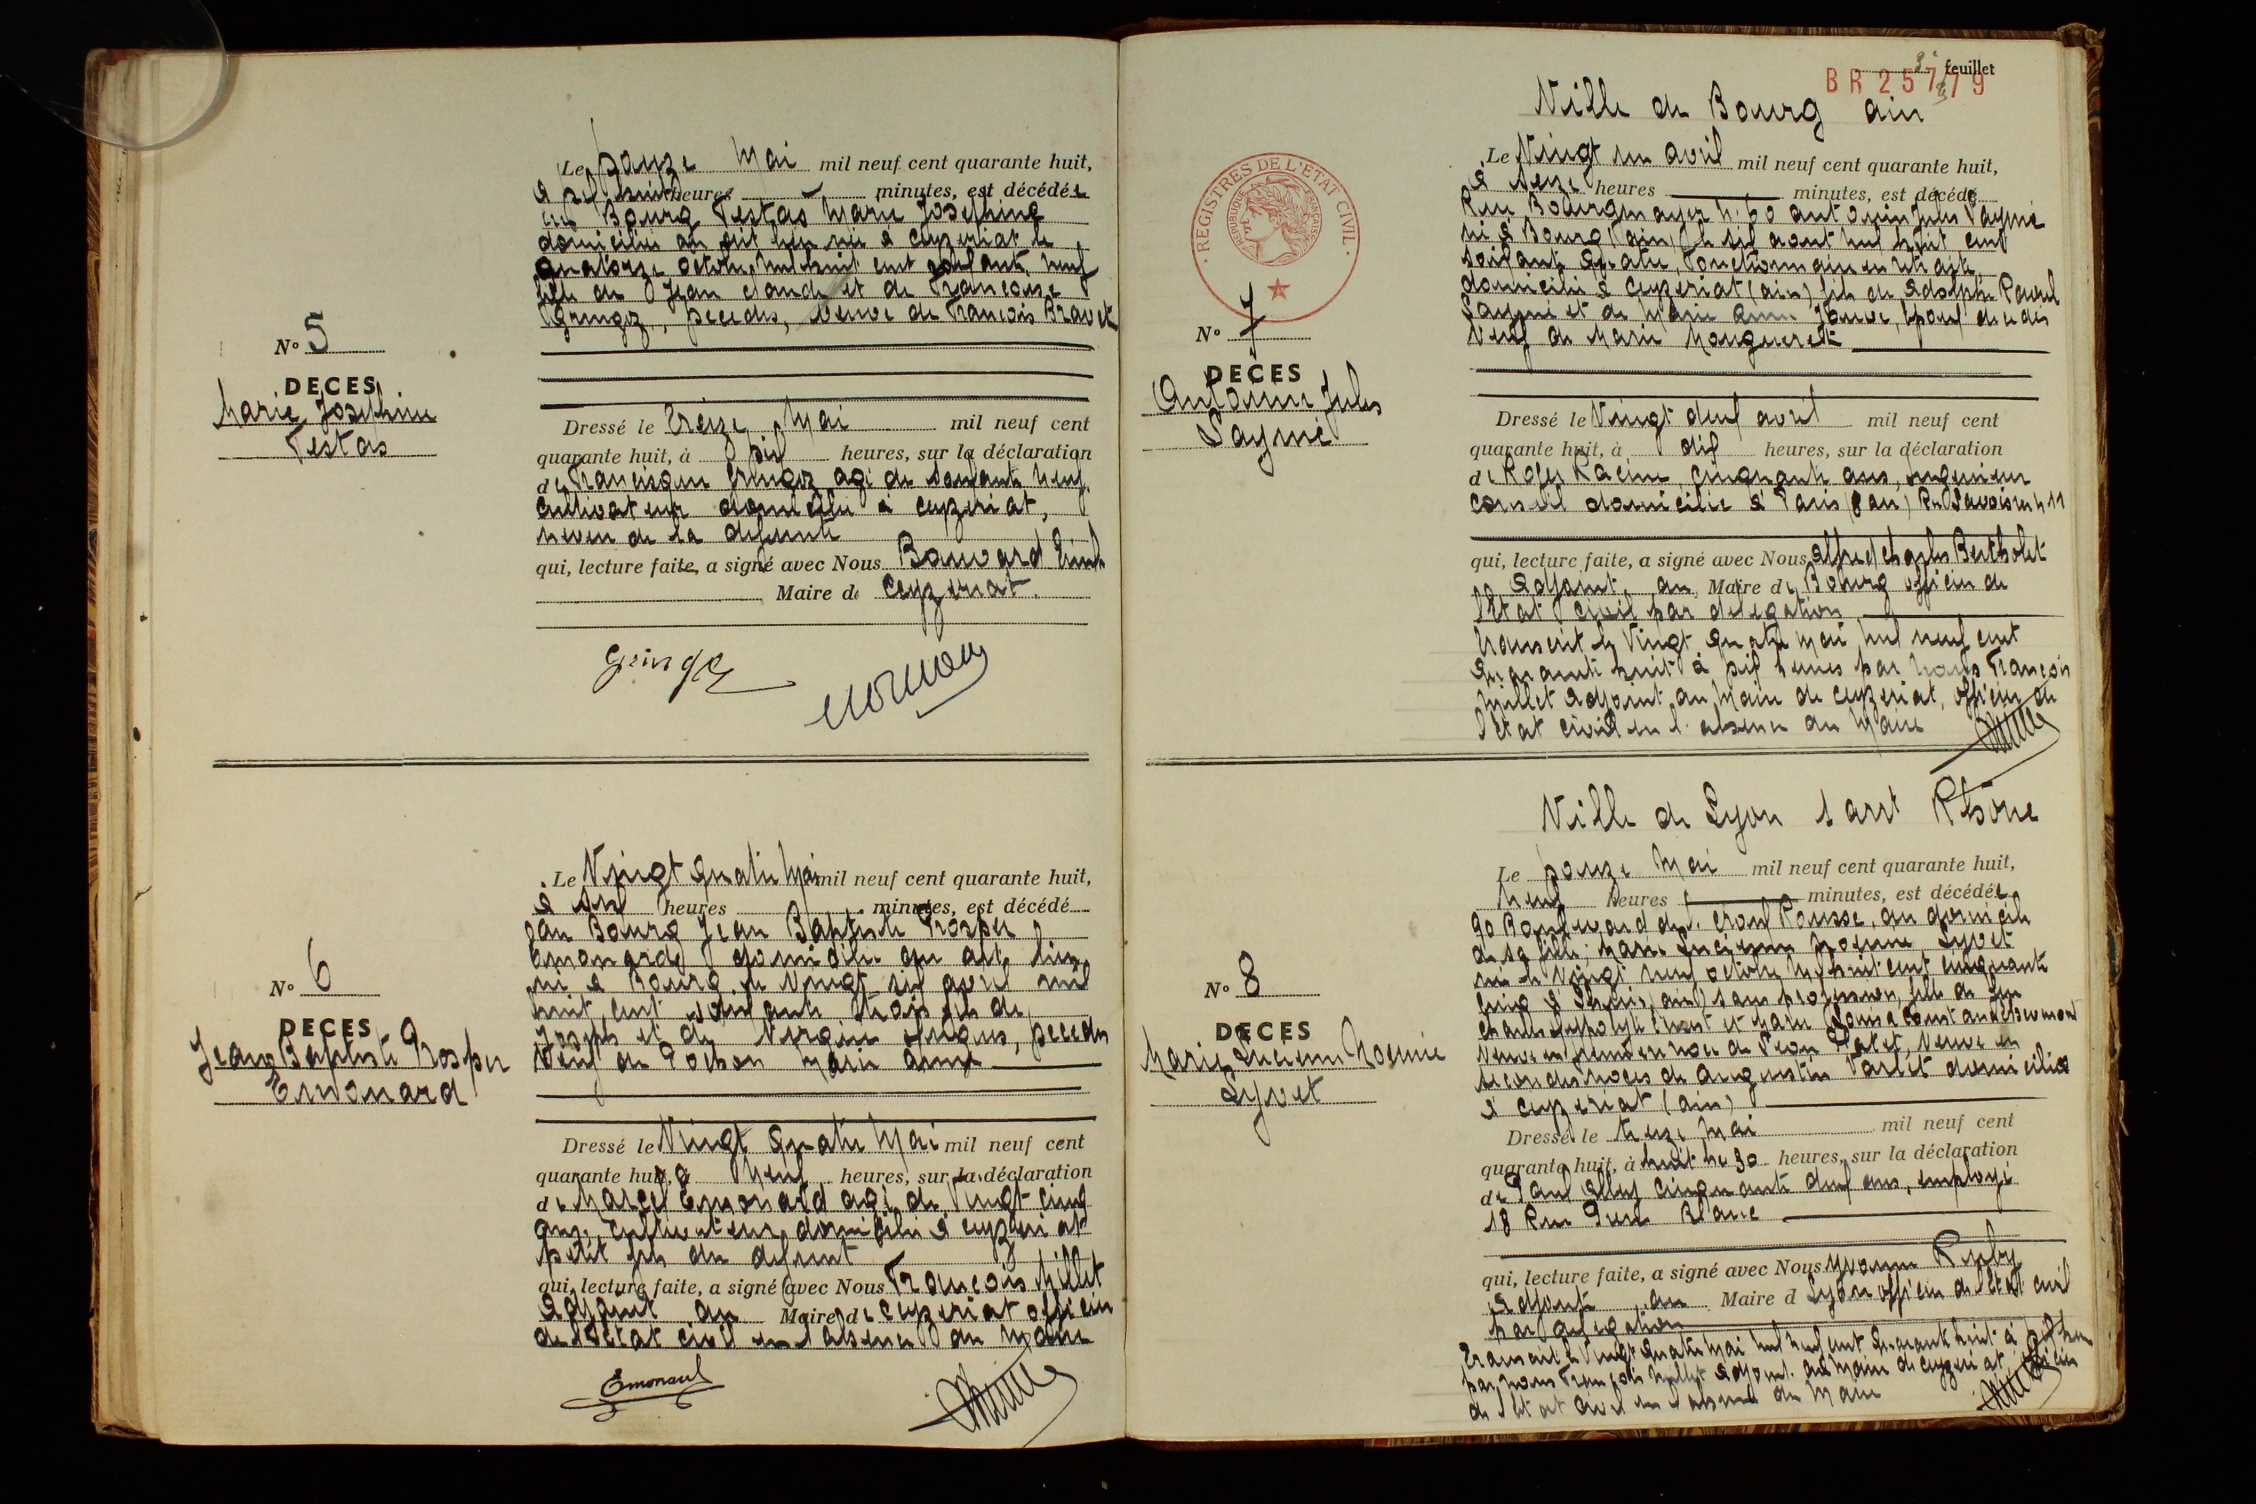 N° 5
DECES
Marie Josephine
Testas
Le douze Mai mil neuf cent quarante huit,
à heures minutes, est décédée
au Bourg Testas Marie Josephine
domiciliée au dit lieu née à Ceyzeriat le
quatorze octobre mil huit cent soixante neuf
fille de Jean Claude et de Françoise
Gringoz, décédés, veuve de François Bravet
Dressé le treize Mai mil neuf cent
quarante huit, à dix heures, sur la déclaration
de Francisque Gringoz agé de soixante neuf
cultivateur domicilié à Ceyzeriat,
neveu de la défunte
qui, lecture faite, a signé avec Nous Bouvard
Maire de Ceyzeriat.
Gringoz
N° 6
DECES
Jean Baptiste Prosper
Emonard
Le Vingt quatre Mai mil neuf cent quarante huit,
à heures minutes, est décédé
au Bourg Jean Baptiste Prosper
Emonard domicilié au dit lieu
né à Bourg le Vingt six avril mil
huit cent soixante trois fils de
Joseph et de Virginie décédés
Veuf de Pochon Marie
Dressé le Vingt quatre Mai mil neuf cent
quarante huit, à Neuf heures, sur la déclaration
de Marcel Emonard agé de Vingt cinq
ans, cultivateur domicilié à Ceyzeriat
petit fils du défunt
qui, lecture faite, a signé avec Nous François Millet
adjoint au Maire de Ceyzeriat officier
de l'état civil en l'absence du Maire
Emonard
3e feuillet
BR 25779
Ville de Bourg ain
REGISTRES DE L'ETAT CIVIL
REPUBLIQUE FRANÇAISE
N° 7
DECES
Antonin Jules
Payme
Le Vingt un avril mil neuf cent quarante huit,
à seize heures minutes, est décédé
Rue Bourgmayer N° 60 antonin Jules Payme
né à Bourg (ain) le six aout mil huit cent
soixante quatre, fonctionnaire en retraite,
domicilié à Ceyzeriat (ain) fils de adolphe
et de Marie époux décédés
Veuf de Marie
Dressé le Vingt deux avril mil neuf cent
quarante huit, à dix heures, sur la déclaration
de Roger Racine, cinquante ans, ingenieur
conseil domicilié à Paris
qui, lecture faite, a signé avec Nous alfred Charles Bertholet
adjoint au Maire de Bourg officier de
l'état civil par delegation
transcrit le Vingt quatre Mai mil neuf cent
quarante huit à dix heures par Nous François
Millet adjoint au Maire de Ceyzeriat, officier de
l'état civil en l'absence du Maire
Ville de Lyon 1 arrt Rhône
N° 8
DECES
Marie Lucienne Noemie
Lyvet
Le douze Mai mil neuf cent quarante huit,
neuf heures minutes, est décédée
90 Boulevard de la Croix Rousse, au domicile
de sa fille, Marie Lucienne Noemie Lyvet
née le Vingt neuf octobre mil huit cent cinquante
cinq à (ain) sans profession, fille de feu
Charles Lyvet et Marie
Veuve en premières noces de Léon Veuve en
secondes noces de Augustin domiciliée
à Ceyzeriat (ain)
Dressé le treize Mai mil neuf cent
quarante huit, à huit h 30 heures, sur la déclaration
de Paul cinquante deux ans, employé
18 Rue
qui, lecture faite, a signé avec Nous Yvonne Ruby
adjoint au Maire de Lyon officier de l'état civil
par délégation
transcrit le Vingt quatre Mai mil neuf cent quarante huit à dix heures
par nous François Millet adjoint au Maire de Ceyzeriat, officier
de l'état civil en l'absence du Maire